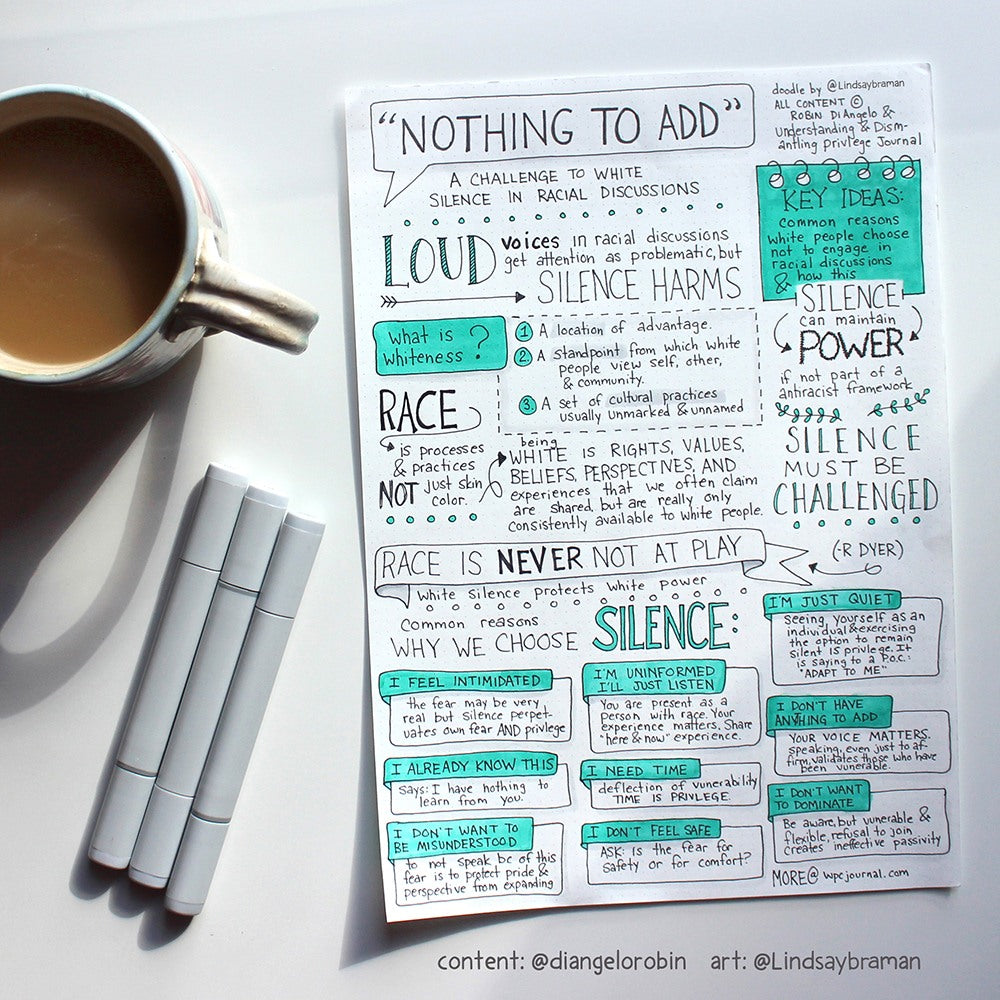 "NOTHING TO ADD"
A CHALLENGE TO WHITE
SILENCE IN RACIAL DISCUSSIONS
doodle by @Lindsaybraman
ALL CONTENT ©
ROBIN DiAngelo &
Understanding & Dism-
antling privilege Journal
KEY IDEAS:
common reasons
white people choose
not to engage in
racial discussions
& how this
SILENCE
can maintain
POWER
if not part of a
antiracist framework
SILENCE
MUST BE
CHALLENGED
LOUD voices in racial discussions
get attention as problematic, but
SILENCE HARMS
What is
whiteness?
1 A location of advantage.
2. A standpoint from which white
people view self, other,
& community.
3. A set of cultural practices
usually unmarked & unnamed
RACE
is processes
& practices
NOT just skin
color.
being
WHITE IS RIGHTS, VALUES,
BELIEFS, PERSPECTIVES, AND
experiences that we often claim
are shared, but are really only
consistently available to white people.
RACE IS NEVER NOT AT PLAY
(-R DYER)
white silence protects white power
Common reasons
WHY WE CHOOSE SILENCE:
I FEEL INTIMIDATED
the fear may be very
real but silence perpet-
uates own fear AND privlege
I'M UNINFORMED
I'LL JUST LISTEN
You are present as a
person with race. Your
experience matters. Share
"here & now" experience.
I'M JUST QUIET
Seeing yourself as an
individual & exercising
the option to remain
silent is privlege. It
is saying to a P.O.C.:
"ADAPT TO ME"
I DON'T HAVE
ANYTHING TO ADD
YOUR VOICE MATTERS.
speaking, even just to af-
firm, validates those who have
been vunerable.
I ALREADY KNOW THIS
says: I have nothing to
learn from you.
I NEED TIME
deflection of vunerability
TIME IS PRIVLEGE.
I DON'T WANT
TO DOMINATE
Be aware, but vunerable &
flexible, refusal to join
creates ineffective passivity
I DON'T WANT TO
BE MISUNDERSTOOD
to not speak bc of this
fear is to protect pride &
perspective from expanding
I DON'T FEEL SAFE
ASK: is the fear for
safety or for comfort?
MORE@ wpcjournal.com
content: @diangelorobin art: @Lindsaybraman